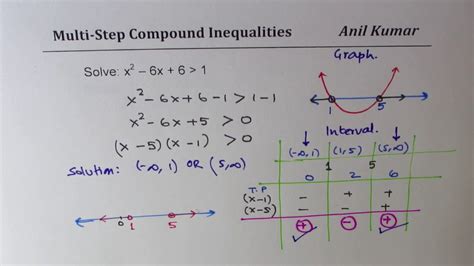 Multi-Step Compound Inequalities Anil Kumar
Solve: x² − 6x + 6 > 1
x² − 6x + 6 − 1 > 1 − 1
x² − 6x + 5 > 0
(x − 5)(x − 1) > 0
Solution: (-∞, 1) OR (5, ∞)
0 1 5
Graph.
1 5
Interval.
(-∞, 1) (1, 5) (5, ∞)
1 5
T.P 0 2 6
(x-1) − + +
(x-5) − − +
+ − +